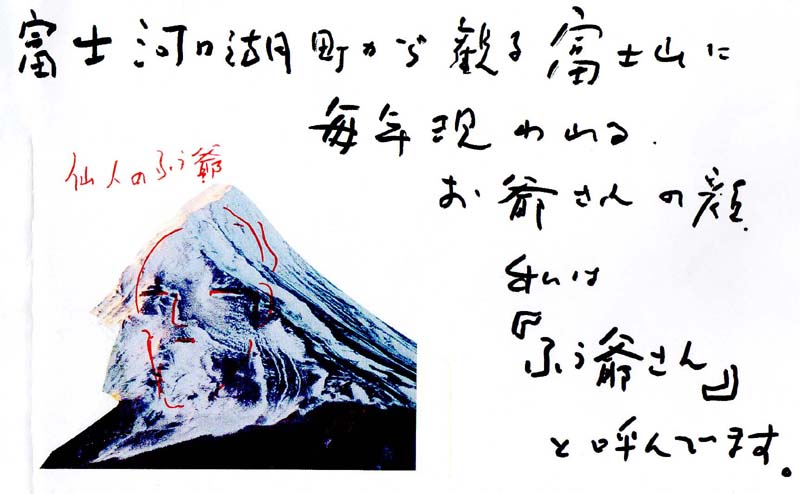 富士河口湖町から観る富士山に
毎年現われる.
仙人のふう爺
お爺さんの顔
私は
『ふう爺さん』
と呼んでいます。